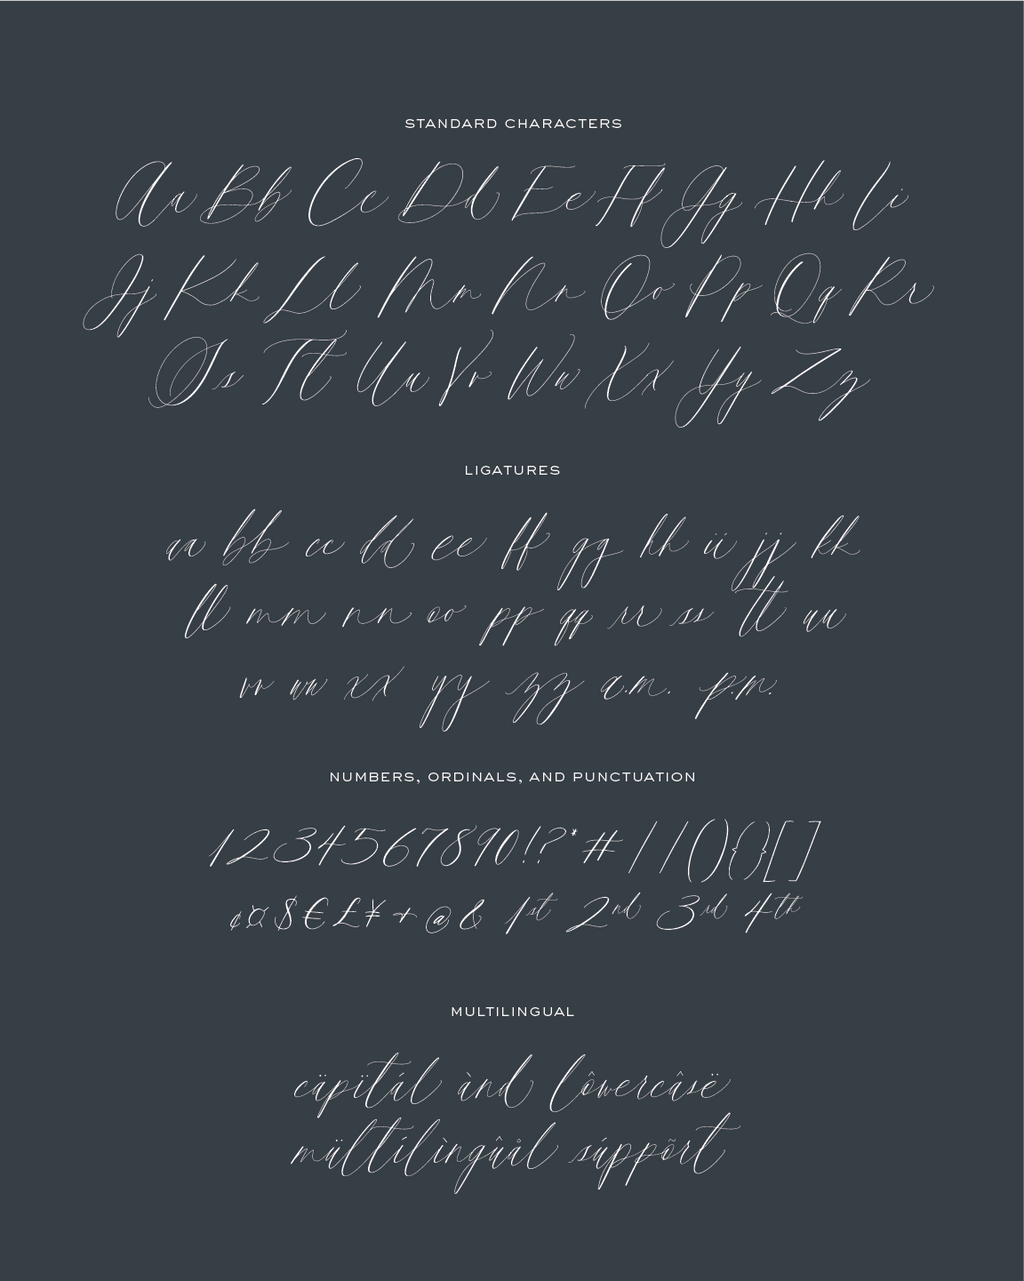 STANDARD CHARACTERS
Aa Bb Cc Dd Ee Ff Gg Hh Ii
Jj Kk Ll Mm Nn Oo Pp Qq Rr
Ss Tt Uu Vv Ww Xx Yy Zz
LIGATURES
aa bb cc dd ee ff gg hh ii jj kk
ll mm nn oo pp qq rr ss tt uu
vv ww xx yy zz a.m. p.m.
NUMBERS, ORDINALS, AND PUNCTUATION
1234567890!?*#/|(){}[]
¢¤$€£¥+@& 1st 2nd 3rd 4th
MULTILINGUAL
cäpïtál ànd lôwercâsë
mültílìngûål súppõrt